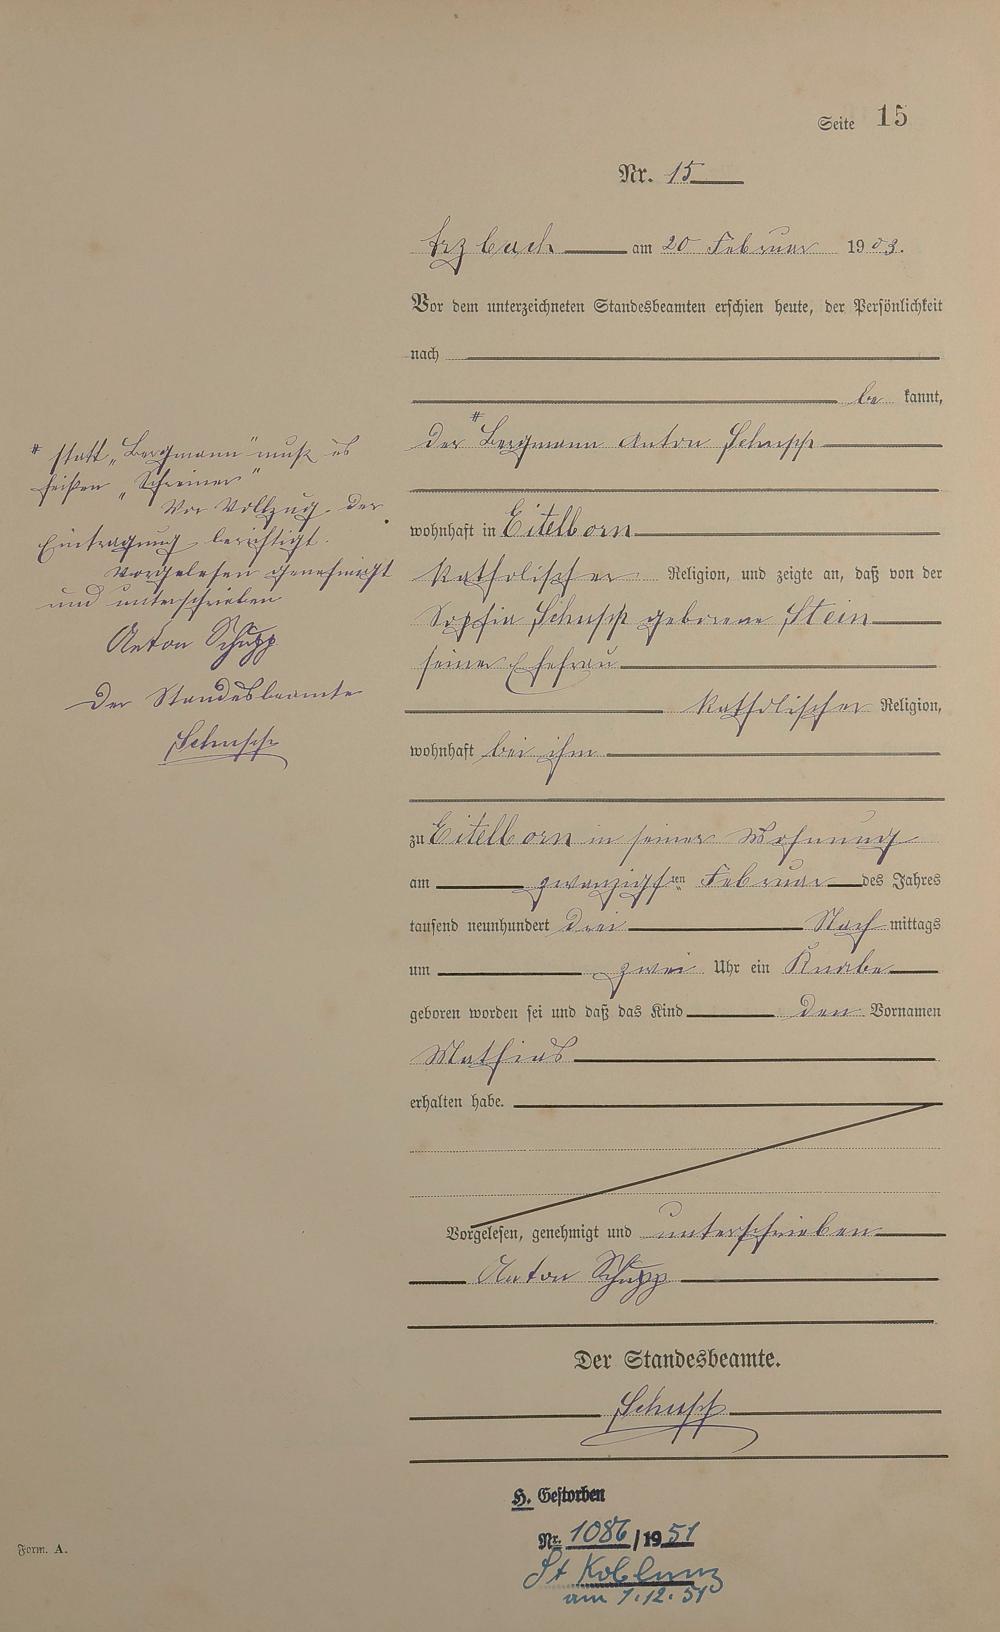 Seite 15
Nr. 15
Arzbach am 20 Februar 1903.
Vor dem unterzeichneten Standesbeamten erschien heute, der Persönlichkeit
nach
be kannt,
der # Bergmann Anton Schupp
wohnhaft in Eitelborn
katholischer Religion, und zeigte an, daß von der
Sophia Schupp geborene Stein
seiner Ehefrau
katholischer Religion,
wohnhaft bei ihm
zu Eitelborn in seiner Wohnung
am zwanzigsten Februar des Jahres
tausend neunhundert drei Nach mittags
um zwei Uhr ein Knabe
geboren worden sei und daß das Kind den Vornamen
Mathias
erhalten habe.
Vorgelesen, genehmigt und unterschrieben
Anton Schupp
Der Standesbeamte.
Schupp
# statt „Bergmann" muß es
heißen „Schreiner"
Vor Vollzug der
Eintragung berichtigt.
Vorgelesen genehmigt
und unterschrieben
Anton Schupp
Der Standesbeamte
Schupp
H. Gestorben
Nr. 1086/1951
St Koblenz
am 1.12.51
Form. A.